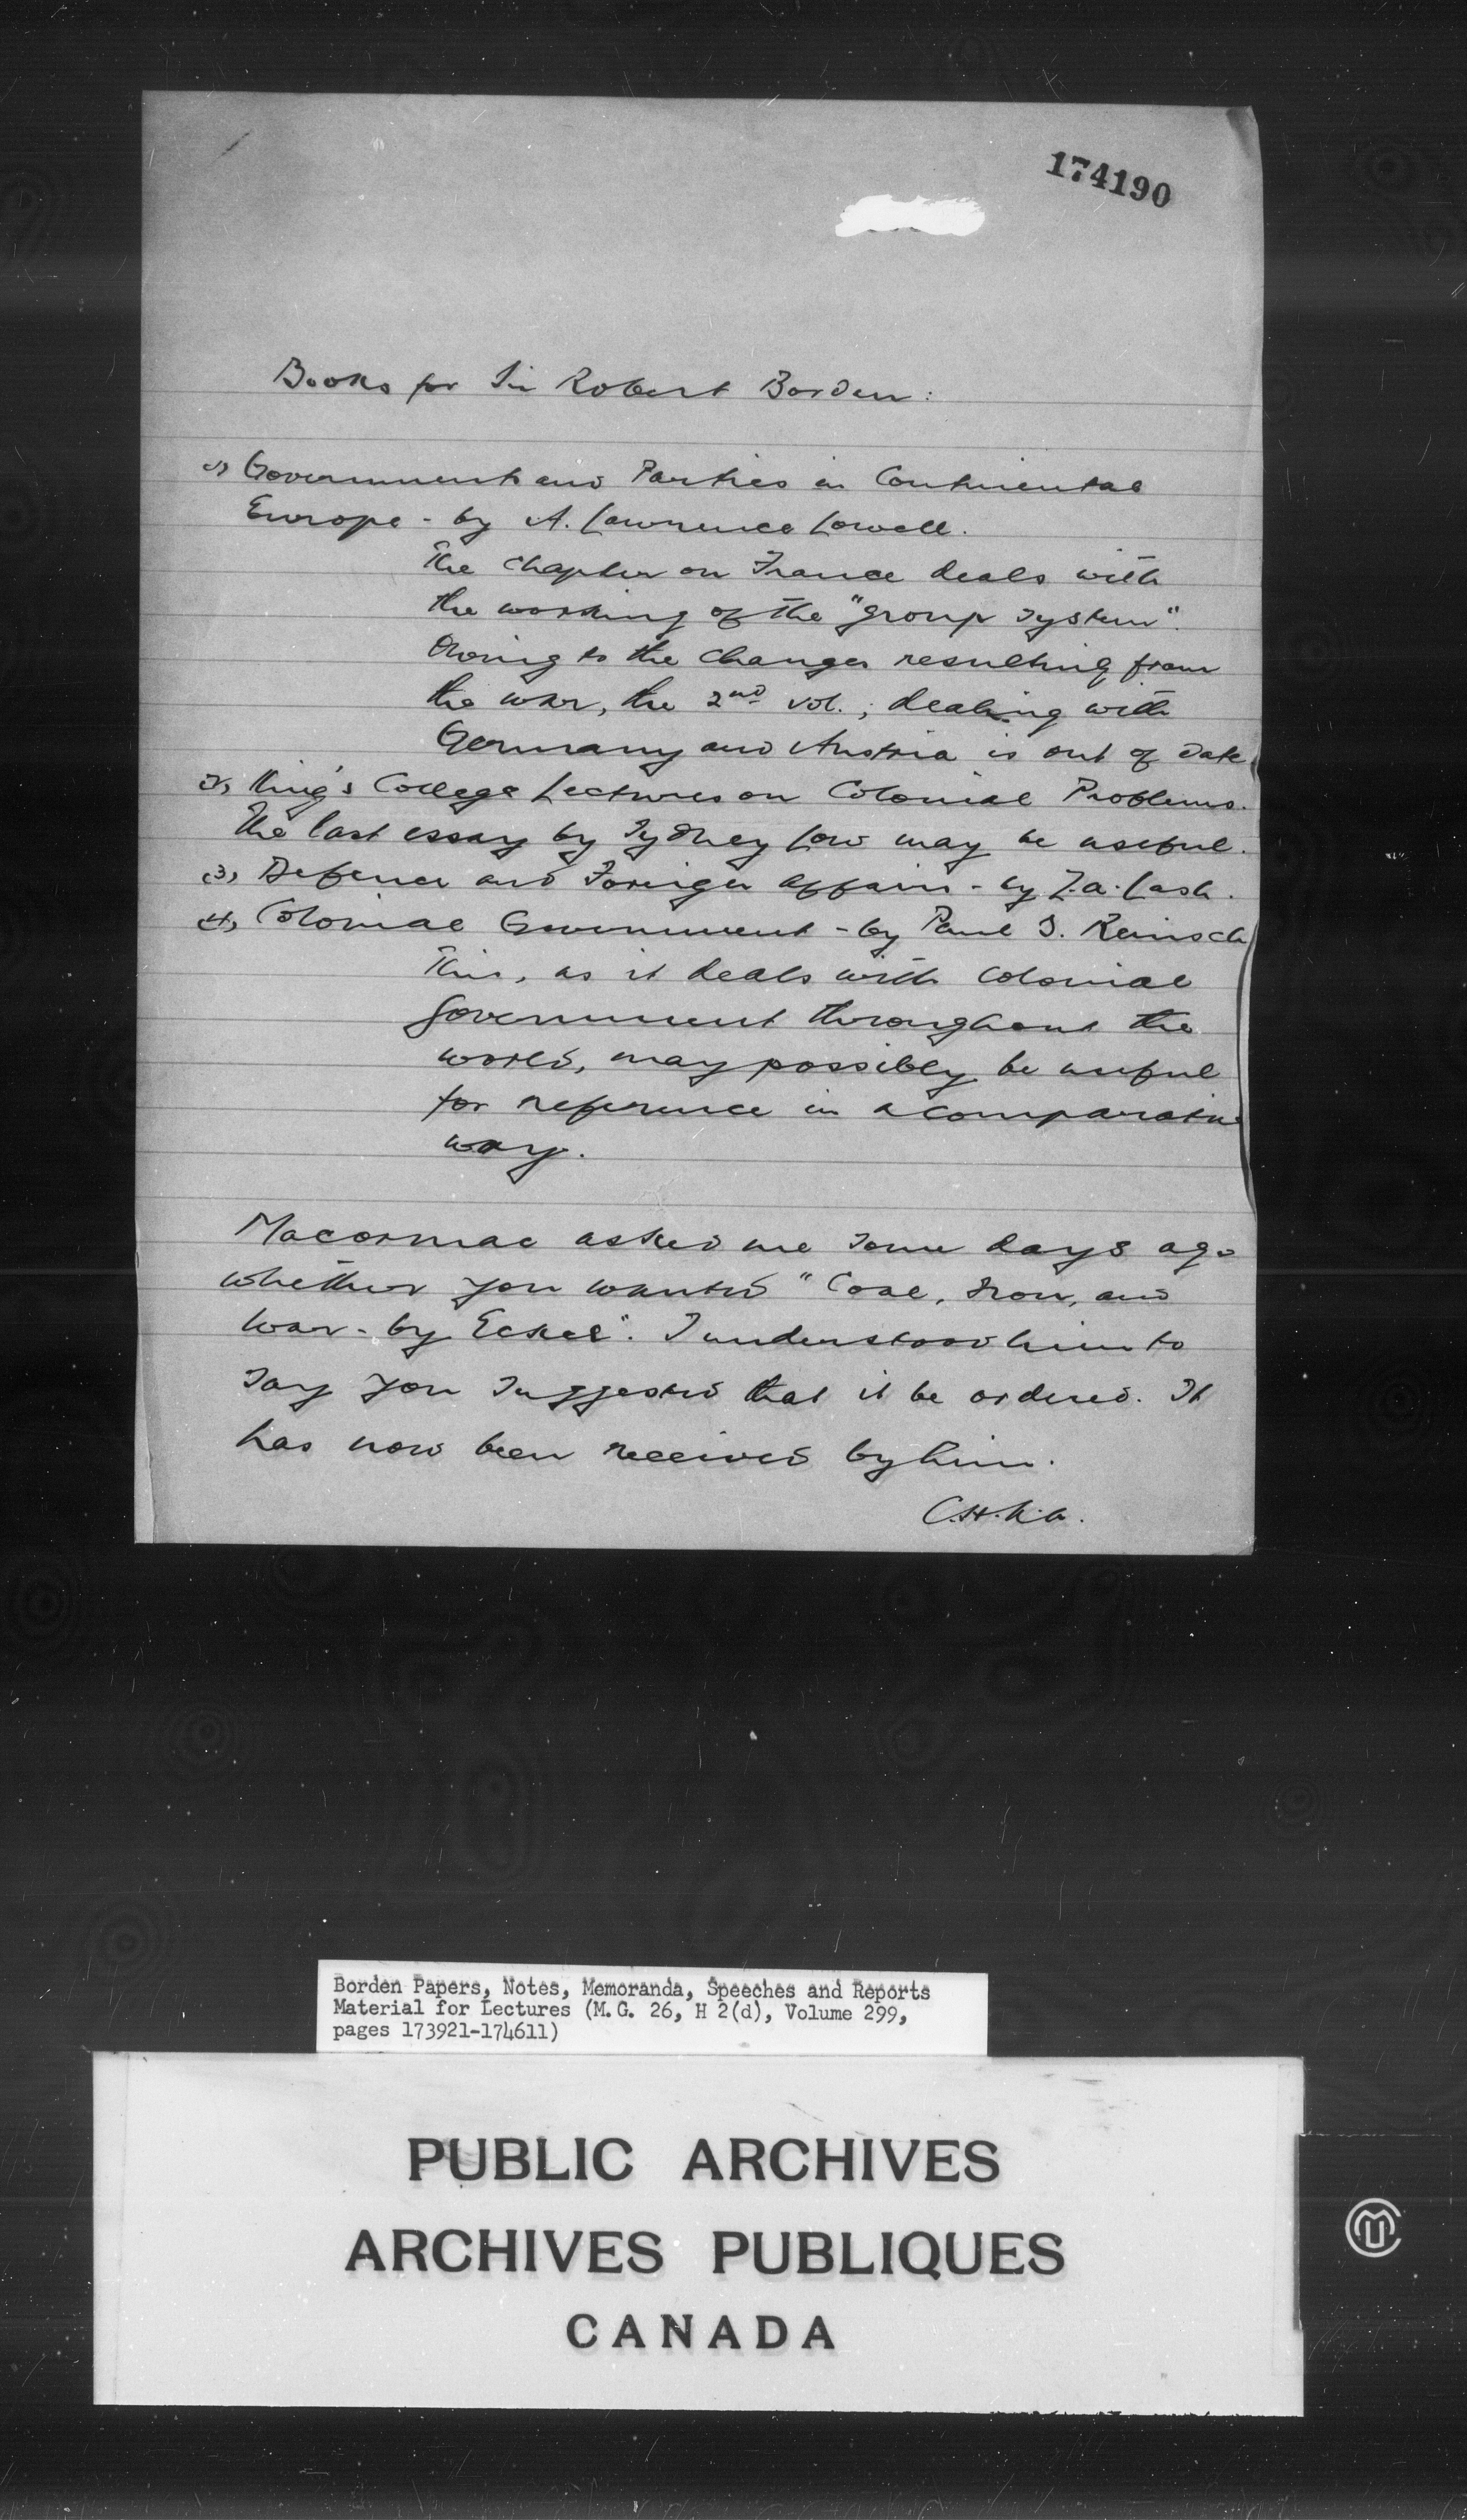 174190
Books for Sir Robert Borden:
(1) Governments and Parties in Continental
Europe - by A. Lawrence Lowell.
The chapter on France deals with
the working of the "group system".
Owing to the changes resulting from
the war, the 2nd vol., dealing with
Germany and Austria is out of date
(2) King's College Lectures on Colonial Problems.
The last essay by Sydney Low may be useful.
(3) Defence and Foreign Affairs - by Z.A. Lash.
(4) Colonial Government - by Paul S. Reinsch
This, as it deals with colonial
government throughout the
world, may possibly be useful
for reference in a comparative
way.
Macormac asked me some days ago
whether you wanted "Coal, Iron, and
War - by Eckel". I understood him to
say you suggested that it be ordered. It
has now been received by him.
C.H.
Borden Papers, Notes, Memoranda, Speeches and Reports
Material for Lectures (M.G. 26, H 2(d), Volume 299,
pages 173921-174611)
PUBLIC ARCHIVES
ARCHIVES PUBLIQUES
CANADA